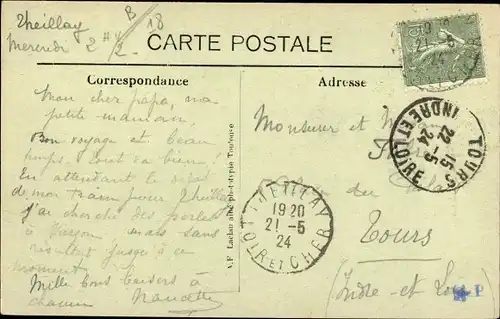 Theillay
Mercredi 2 h
B
18
CARTE POSTALE
Correspondance
Adresse
Mon cher papa, ma
petite maman
Bon voyage et beau
temps. Tout va bien!
En attendant le départ
de mon train pour Theillay
j'ai cherché des perles
à Vierzon mais sans
résultat jusqu'à ce
moment
Mille bons baisers à
chacun
Nanette
A. P. Laclau aîné phototypie Toulouse
THEILLAY
19 20
21 - 5
24
LOIR ET CHER
19 20
21 - 5
24
TOURS
15
22 - 5
24
INDRE ET LOIRE
Monsieur et
du
Tours
(Indre et Loire
P